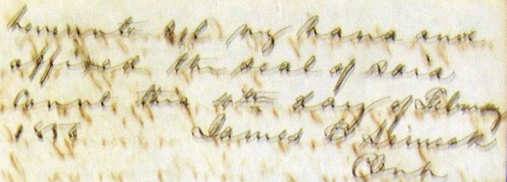 hereunto set my hand and
affixed the seal of said
Court this 10th day of February
James
Clerk